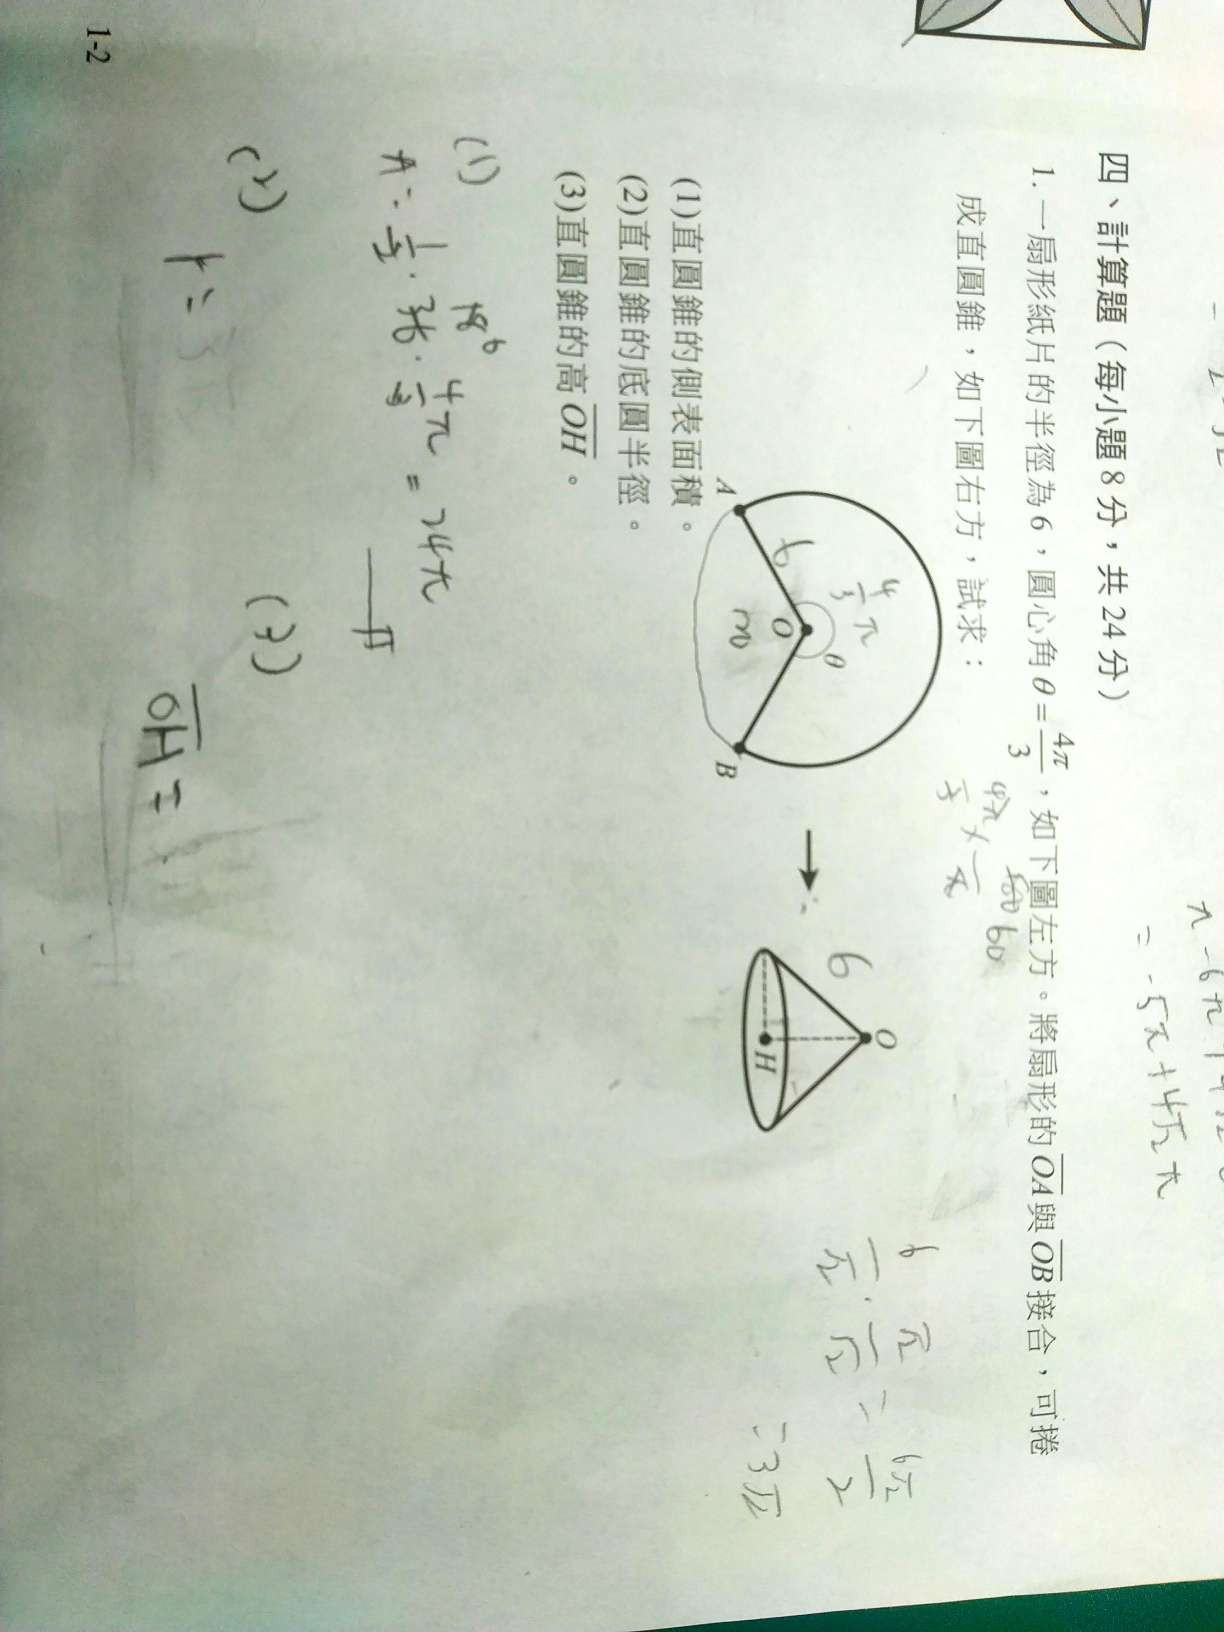 四、計算題（每小題8分，共24分）
1. 一扇形紙片的半徑為6，圓心角θ=4π/3，如下圖左方。將扇形的OA與OB接合，可捲
成直圓錐，如下圖右方，試求：
4π/3 × 60/π
A
B
O
θ
6
4/3 π
→
O
H
6
6/√2 · √2/√2 = 6√2/2
= 3√2
(1)直圓錐的側表面積。
(2)直圓錐的底圓半徑。
(3)直圓錐的高OH。
(1)
A = 1/2 · 36 · 4/3 π = 24π
(2)
r =
(3)
OH =
= -5π+4√2 π
1-2